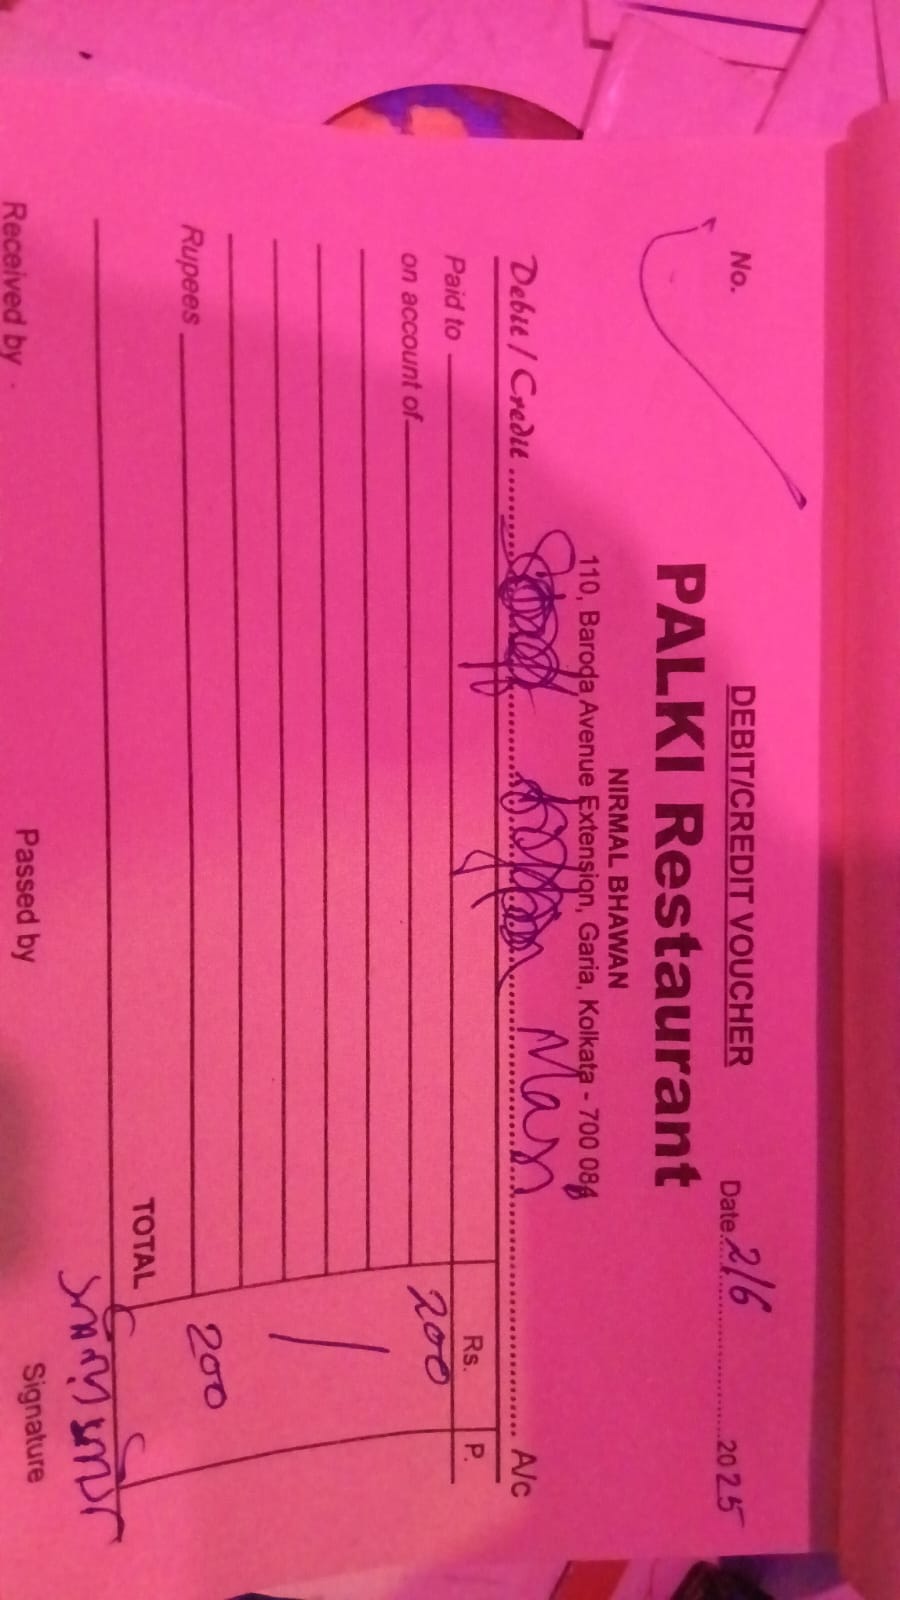 DEBIT/CREDIT VOUCHER
No. Date 2/6 2025
PALKI Restaurant
NIRMAL BHAWAN
110, Baroda Avenue Extension, Garia, Kolkata - 700 084
Debit / Credit ........ A/c
Rs. P.
Paid to
on account of 200
Rupees 200
TOTAL
Received by Passed by Signature